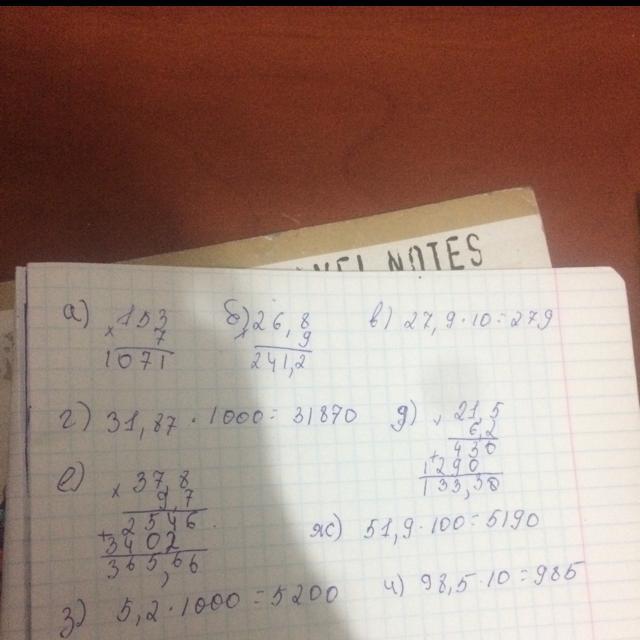 NOTES
а) 153 б) 26,8 в) 27,9·10=279
× 7 × 9
1071 241,2
г) 31,87·1000=31870 д) × 21,5
6,2
430
+1290
133,30
е) × 37,8
9,7
2546
+3402
365,66
ж) 51,9·100=5190
з) 5,2·1000=5200 и) 98,5·10=985